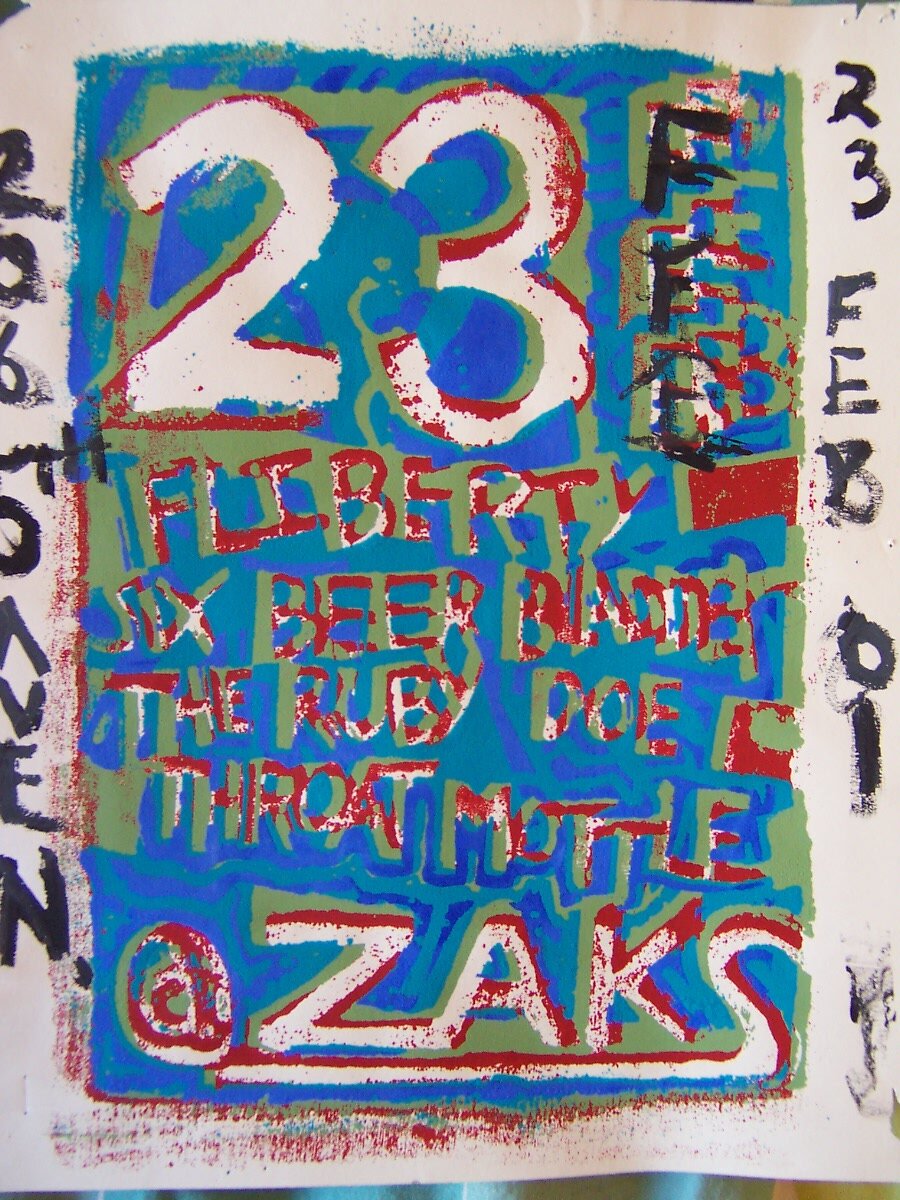 23 FEB
FLIBERTY
SIX BEER BLADDER
THE RUBY DOE
THROAT MOTTLE
@ ZAKS
206 5TH AVE N.
23 FEB 01